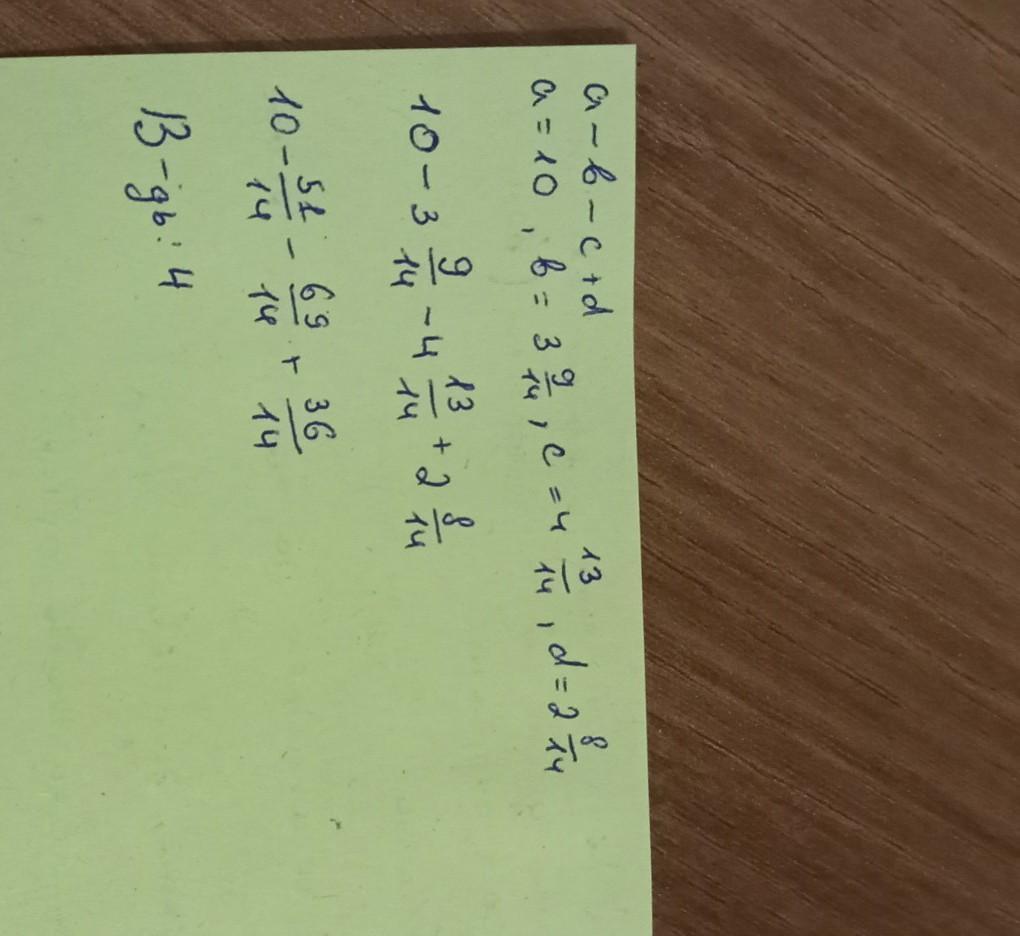 a - b - c + d
a = 10, b = 3 9/14, c = 4 13/14, d = 2 8/14
10 - 3 9/14 - 4 13/14 + 2 8/14
10 - 51/14 - 69/14 + 36/14
В-дь: 4